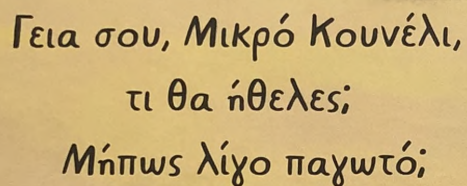 Γεια σου, Μικρό Κουνέλι,
τι θα ήθελες;
Μήπως λίγο παγωτό;